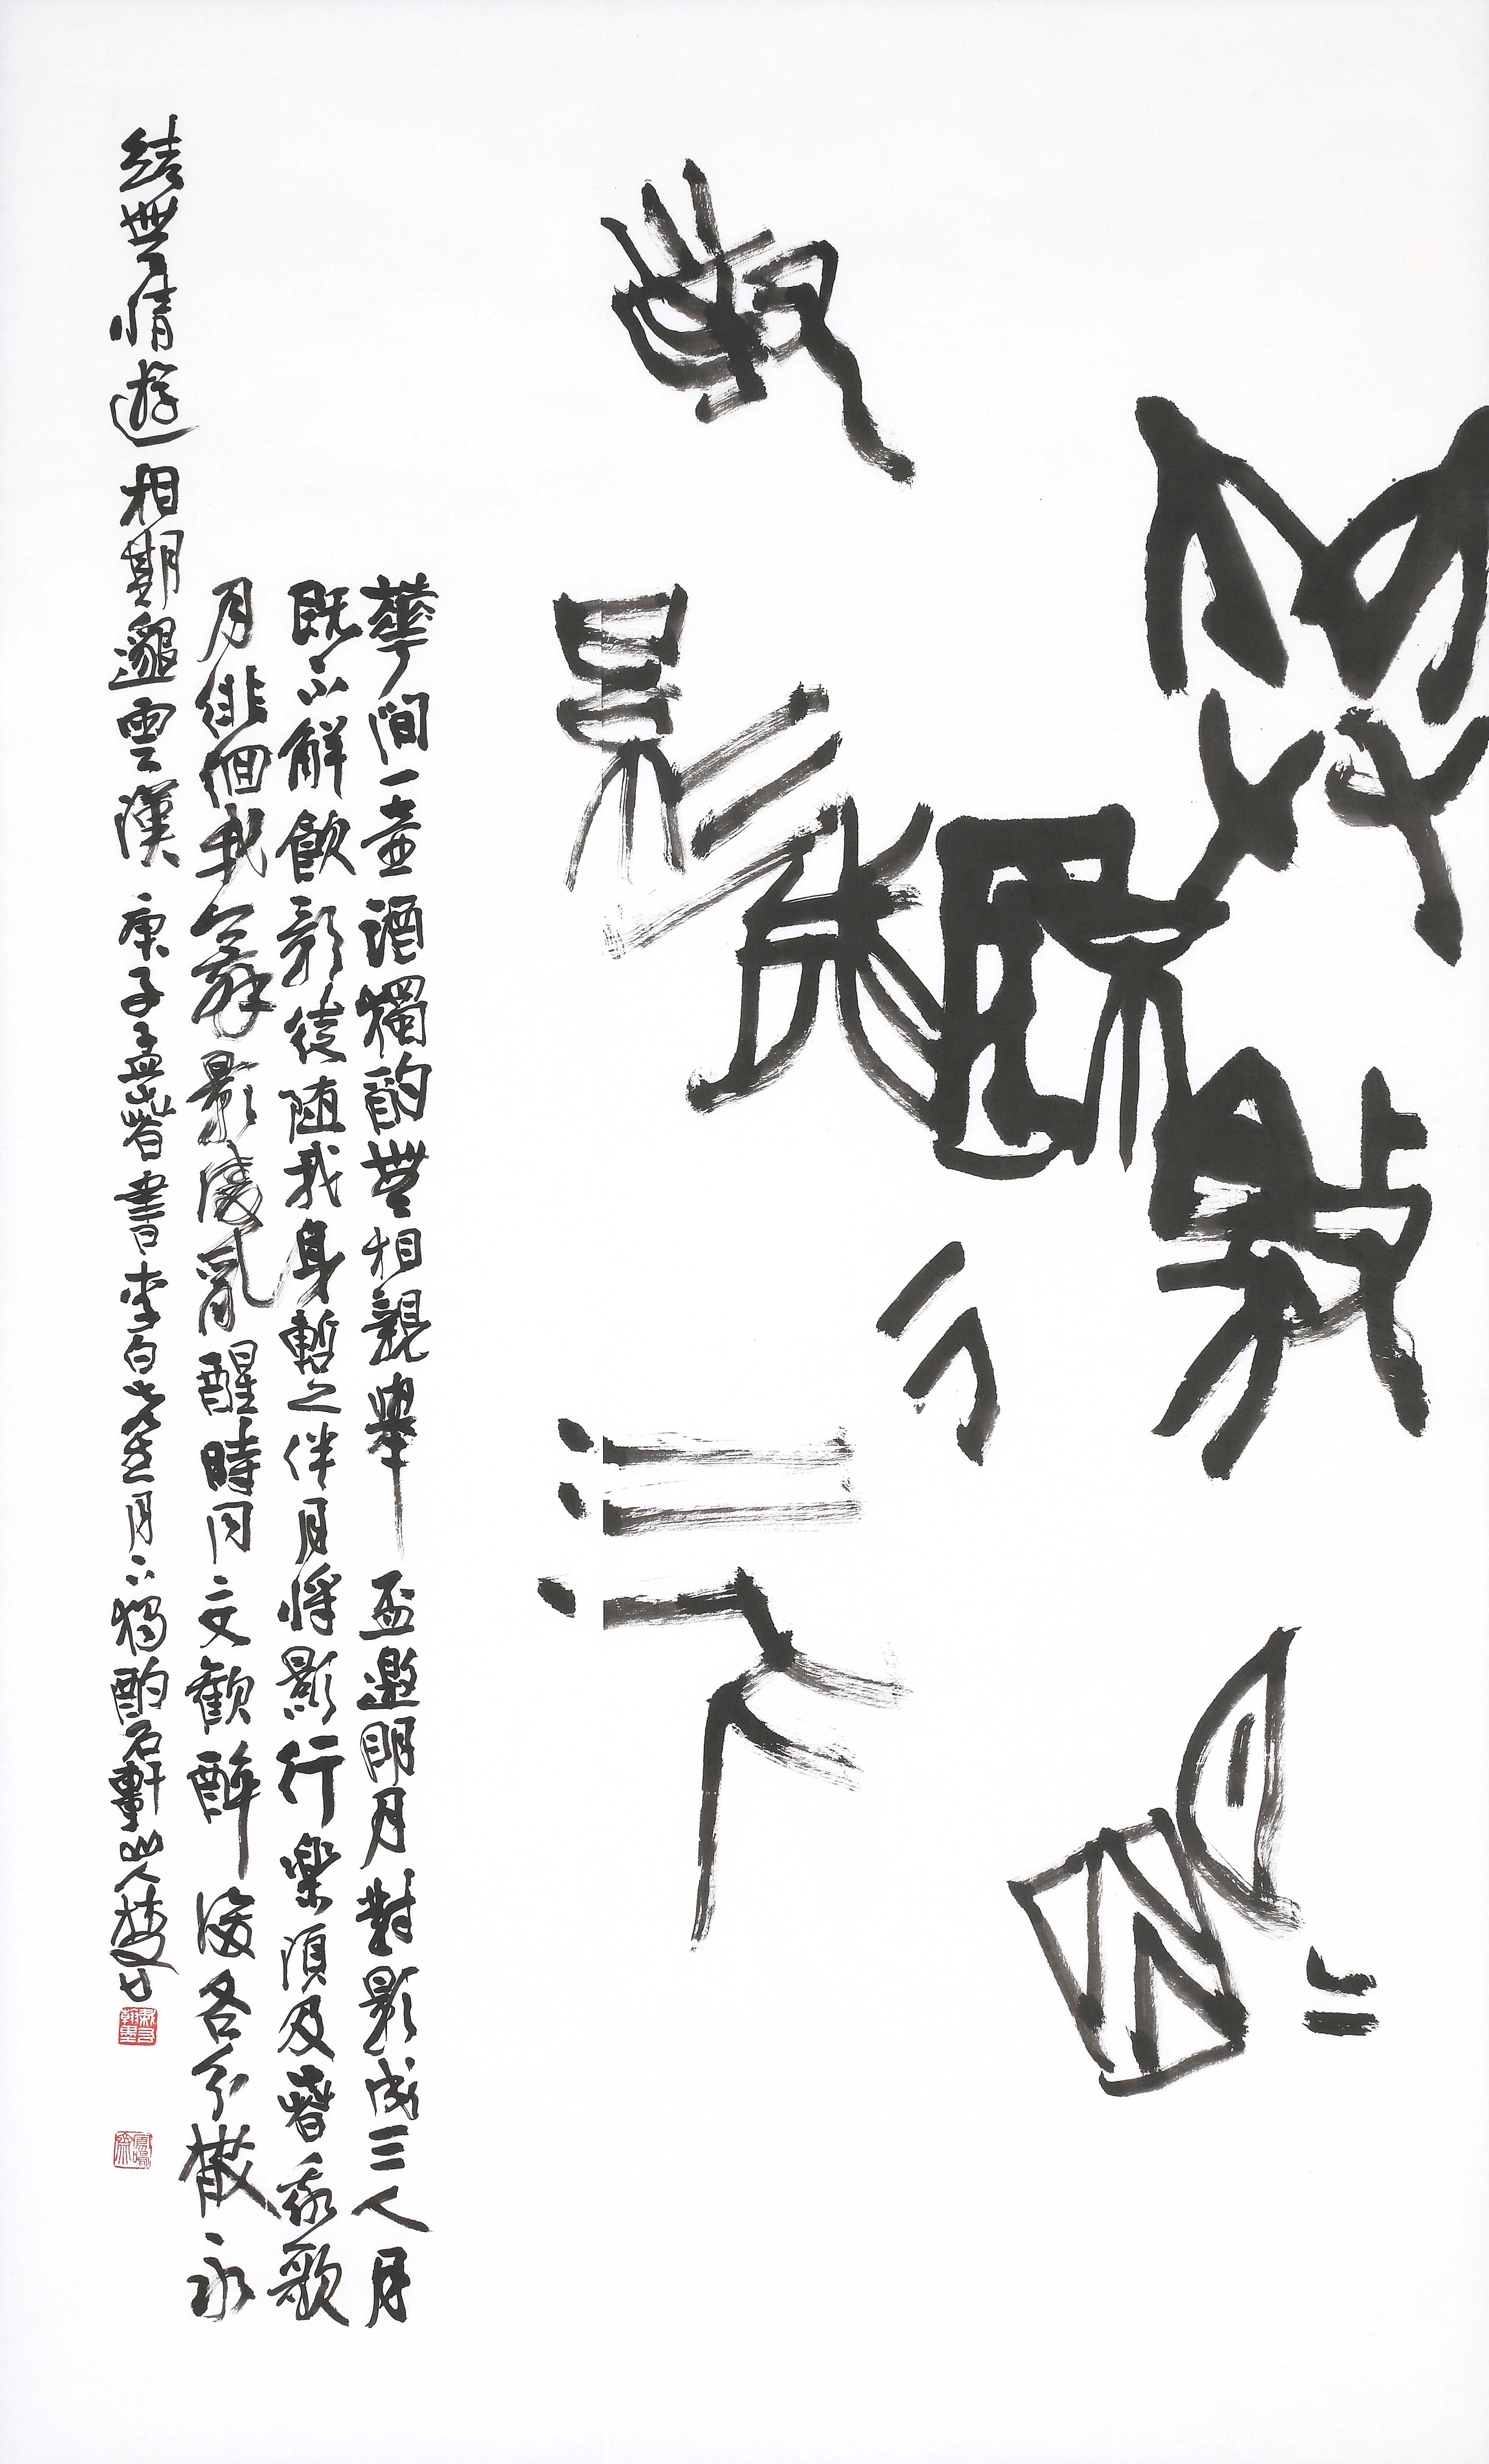 舉杯邀明月
對影成三人
華間一壺酒獨酌無相親舉盃邀明月對影成三人月
既不解飲影徒隨我身暫之伴月將影行樂須及春我歌
月徘徊我舞影凌亂醒時同交歡醉後各分散永
結無情遊相期邈雲漢庚子孟春書李白先生月下獨酌石軒山人